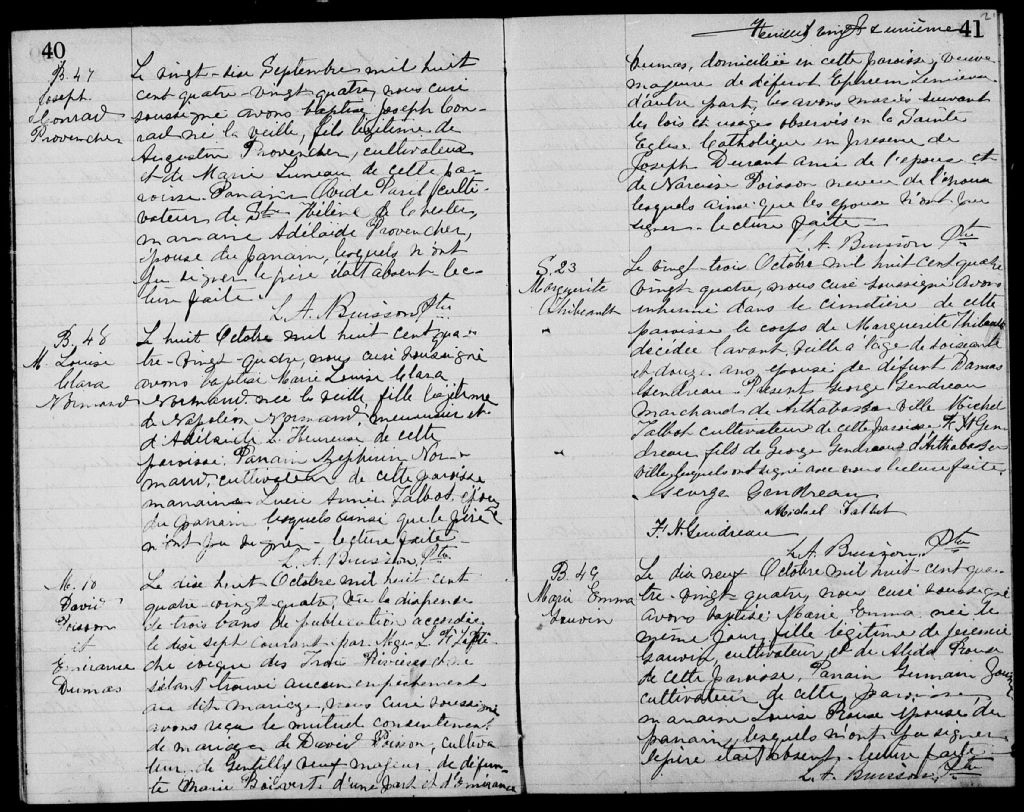 40
B. 47
Joseph
Conrad
Provencher
Le vingt-dix Septembre mil huit
cent quatre-vingt quatre, nous curé
soussigné avons baptisé Joseph Con-
rad né la veille, fils légitime de
Augustin Provencher, cultivateur
et de Marie Luneau de cette pa-
roisse. Parrain Paret culti-
vateur de Ste Hélène de Chester,
marraine Adélaïde Provencher,
épouse du parrain, lesquels n'ont
pu signer le père était absent lec-
ture faite.
L. A. Buisson, Ptre
B. 48
M. Louise
Clara
Normand
L huit Octobre mil huit cent qua-
tre-vingt-quatre, nous curé soussigné
avons baptisé Marie Louise Clara
Normand née la veille, fille légitime
de Napoléon Normand, menuisier et
d'Adélaïde L'Heureux de cette
paroisse. Parrain Zéphirin Nor-
mand, cultivateur de cette paroisse
marraine Lucie Annie Talbot, épouse
du parrain lesquels ainsi que le père
n'ont pu signer - lecture faite -
L. A. Buisson, Ptre
M. 10
David
Poisson
et
Emérance
Dumas
Le dix huit Octobre mil huit cent
quatre-vingt quatre, vu la dispense
de trois bans de publication accordée
le dix sept courant par Mgr L. F. Laflè-
che évêque des Trois Rivières et ne
s'étant trouvé aucun empêchement
au dit mariage, nous curé soussigné
avons reçu le mutuel consentement
de mariage de David Poisson, cultiva
teur de Gentilly veuf majeur de défun-
te Marie Boisvert d'une part et d'Emérance
Feuillet vingt & unième
41
2
Dumas, domiciliée en cette paroisse, veuve
majeure de défunt Ephrem Lemieux
d'autre part, les avons mariés suivant
les lois et usages observés en la Sainte
Eglise Catholique en présence de
Joseph Durant ami de l'époux et
de Narcisse Poisson neveu de l'époux
lesquels ainsi que les époux n'ont pu
signer - lecture faite -
L. A. Buisson Ptre
S. 23
Marguerite
Thibeault
"
"
Le vingt-trois Octobre mil huit cent quatre
vingt-quatre, nous curé soussigné avons
inhumé dans le cimetière de cette
paroisse le corps de Marguerite Thibault
décédée l'avant veille à l'âge de soixante
et douze ans, épouse de défunt Damas
Gendreau. Présent George Gendreau
marchand de Arthabasca ville Michel
Talbot cultivateur de cette paroisse F. H Gen
dreau fils de George Gendreau d'Arthabasca
ville, lesquels ont signé avec nous lecture faite.
George Gendreau
Michael Talbot
F. H. Gendreau
L. A. Buisson, Ptre
B. 49
Marie Emma
Gauvin
Le dix neuf Octobre mil huit cent qua-
tre-vingt-quatre, nous curé soussigné
avons baptisé Marie Emma née le
même jour, fille légitime de Jérémie
Gauvin cultivateur et de Alida Rouse
de cette paroisse, Parrain Germain
cultivateur de cette paroisse,
marraine Louise Rouse épouse du
parrain, lesquels n'ont pu signer
le père était absent - lecture faite -
L. A. Buisson, Ptre